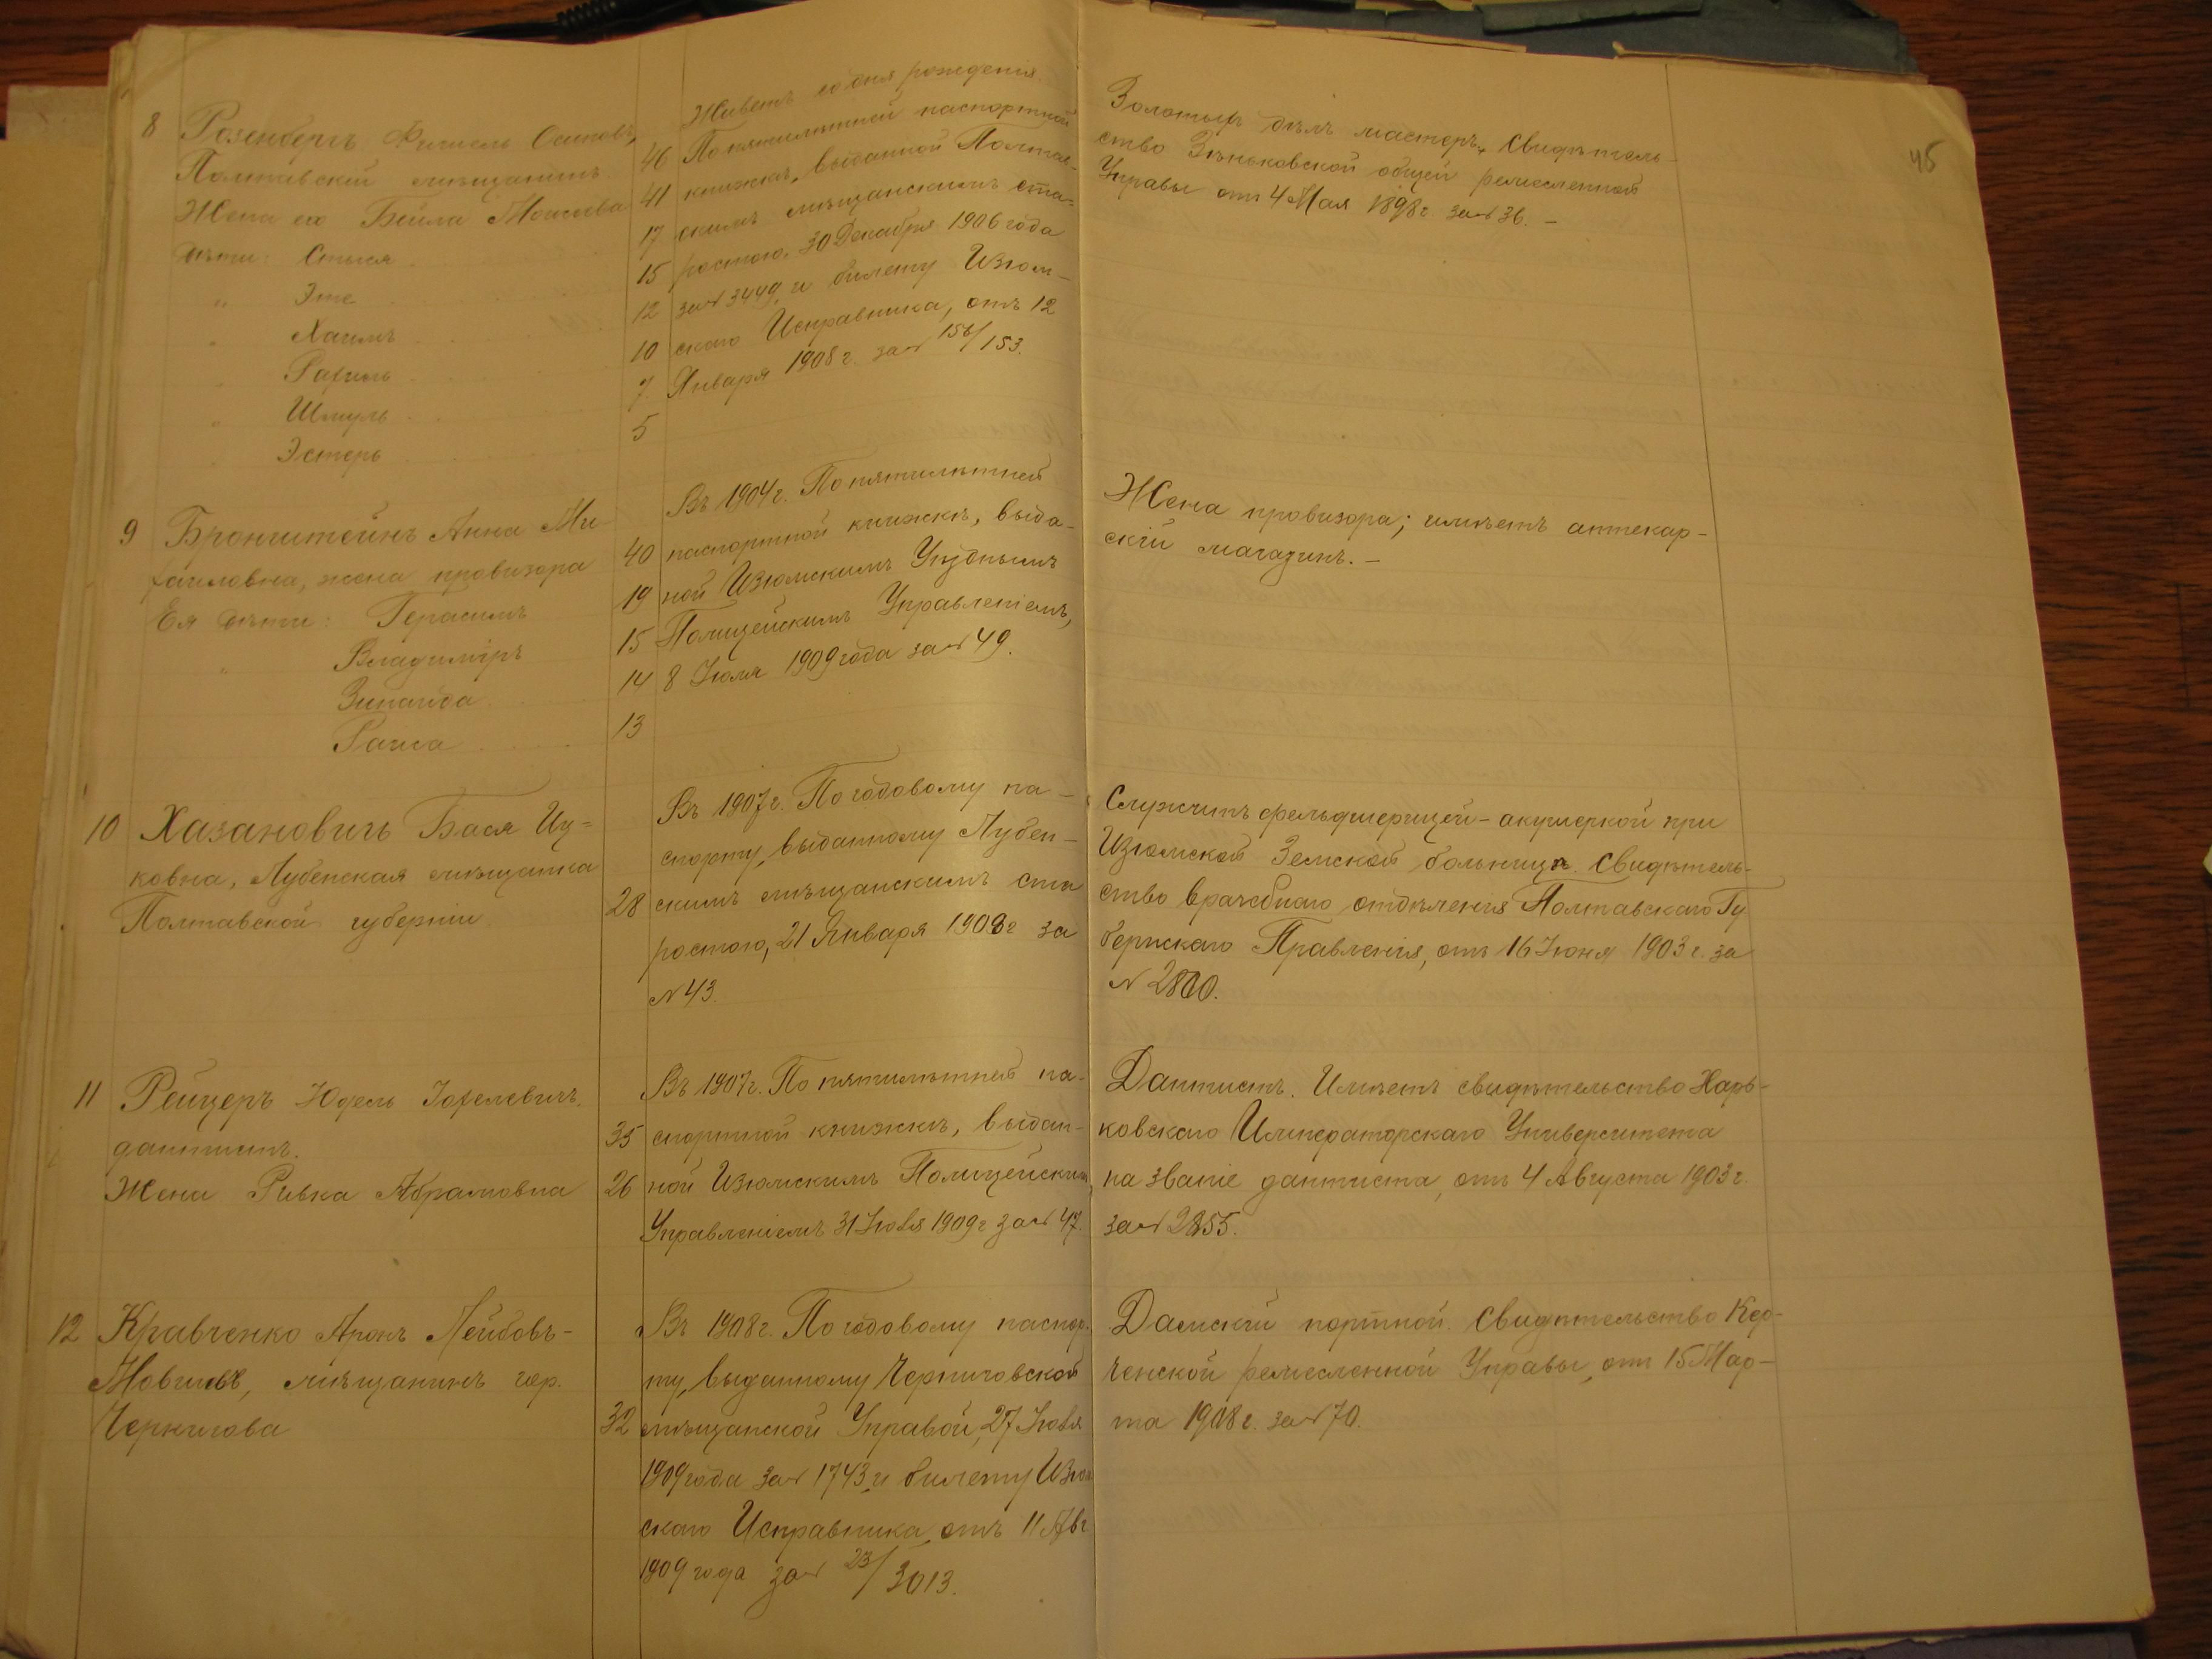 45
8 Розенбергъ Фишель Осиповъ,
Полтавскій мѣщанинъ 46
Жена его Бейла Моисеева 41
дѣти: Стыся 17
" Эте 15
" Хаимъ 12
" Рафиль 10
" Шмуль 7
" Эстеръ 5
Живетъ со дня рожденія.
По пятилѣтней паспортной
книжкѣ, выданной Полтав-
скимъ мѣщанскимъ ста-
ростою, 30 Декабря 1906 года
за № 3449, и билету Изюм-
скаго Исправника, отъ 12
Января 1908 г. за № 156/153.
Золотыхъ дѣлъ мастеръ. Свидѣтель-
ство Зѣньковской общей ремесленной
Управы отъ 4 Мая 1898 г. за № 36. –
9 Бронштейнъ Анна Ми-
хаиловна, жена провизора 40
Ея дѣти: Герасимъ 19
" Владиміръ 15
Зинаида 14
Раиса 13
Въ 1904 г. По пятилѣтней
паспортной книжкѣ, выда-
ной Изюмскимъ Уѣзднымъ
Полицейскимъ Управленіемъ,
8 Іюля 1909 года за № 49.
Жена провизора; имѣетъ аптекар-
скій магазинъ. –
10 Хазановичъ Бася Иц-
ковна, Лубенская мѣщанка
Полтавской губерніи 28
Въ 1907 г. По годовому па-
спорту, выданному Лубен-
скимъ мѣщанскимъ ста
ростою, 21 Января 1909 г за
№ 43.
Служитъ фельдшерицей-акушеркой при
Изюмской Земской больницѣ. Свидѣтель-
ство врачебнаго отдѣленія Полтавскаго Гу
бернскаго Правленія, отъ 16 Іюня 1903 г. за
№ 2800.
11 Рейцеръ Юдель Іохелевичъ,
дантистъ. 35
Жена Ривка Абрамовна 26
Въ 1907 г. По пятилѣтней па-
спортной книжкѣ, выдан-
ной Изюмскимъ Полицейским
Управленіемъ 31 Іюля 1909 г за № 47.
Дантистъ. Имѣетъ свидѣтельство Харь-
ковскаго Императорскаго Университета
на званіе дантиста, отъ 4 Августа 1903 г.
за № 2255.
12 Кравченко Аронъ Лейбовъ-
Мовшевъ, мѣщанинъ гор.
Чернигова 32
Въ 1908 г. По годовому паспор-
ту, выданному Черниговской
мѣщанской Управой, 27 Іюля
1909 года за № 1743, и билету Изюм
скаго Исправника, отъ 11 Авг
1909 года за № 23/3013.
Дамскій портной. Свидѣтельство Кер-
ченской ремесленной Управы, отъ 15 Мар-
та 1908 г. за № 70.